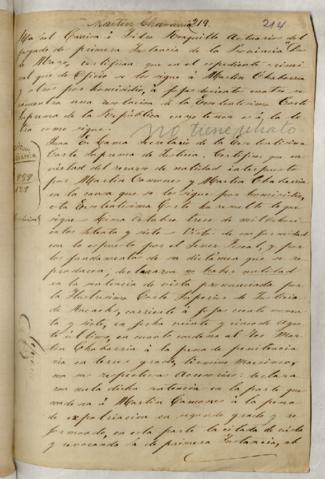 Martin Chavarria 219.
214
Garcia é Silva Actuarios del
Juzgado de primera Instancia de la Provincia de
certifican que en el espediente crimi-
nal que de Oficio se les sigue á Martin Chavarria
y otro por homicidio, á fojas ciento cuatro se
encuentra una resolucion de la Excelentisima Corte
Suprema de la República cuyo tenor es á la le-
tra como sigue.
no tiene jurado
Juan E. Lama Secretario de la Excelentisima
Corte Suprema de Justicia. Certifico que en
virtud del recurso de nulidad interpuesto
por Martin Camones y Martin Chavarria
en la causa que se les sigue por homicidio,
la Excelentisima Corte ha resuelto lo que
sigue. Lima Octubre trece de mil ochocien-
tos setenta y siete. Vistos: de conformidad
con lo espuesto por el Señor Fiscal, y por
los fundamentos de su dictamen que se re-
producen, declararon no haber nulidad
en la sentencia de vista pronunciada por
la Ilustrisima Corte Superior de Justicia
de Ancachs, corriente á fojas ciento noven-
ta y siete, su fecha veinte y cinco de Agos-
to último, en cuanto condena al reo Mar-
tin Chavarria á la pena de penitencia-
ria en tercer grado, termino
con sus respectivas accesorias: declara-
ron nula dicha sentencia en la parte que
condena á Martin Camones á la pena
de expatriacion en segundo grado y re-
formando en esta parte la citada de vista
y revocando la de primera Instancia, ab